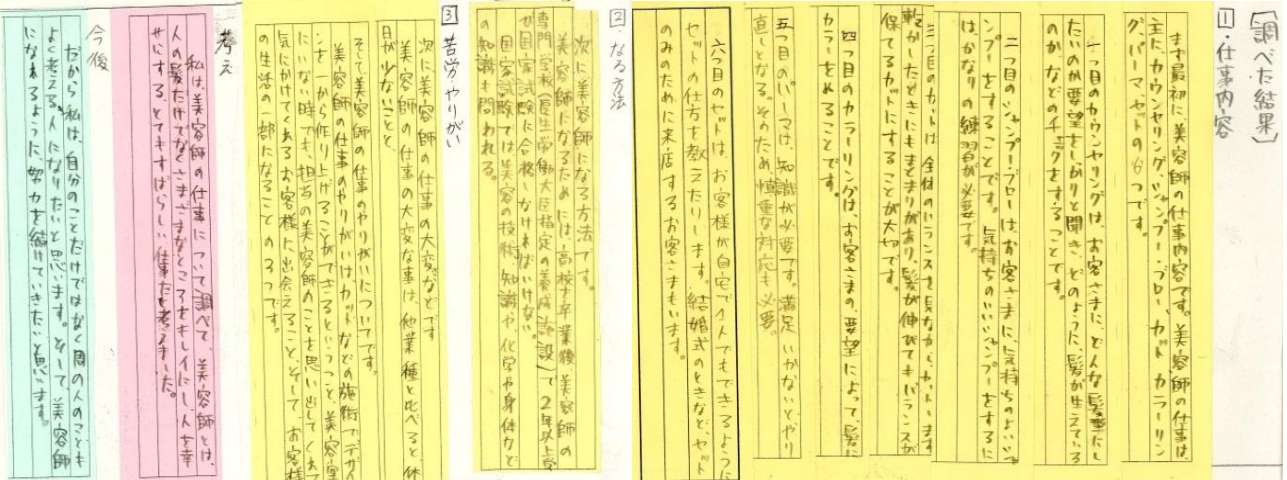 〔調べた結果〕
1．仕事内容
まず最初に、美容師の仕事内容です。美容師の仕事は、
主に、カウンセリング、シャンプー・ブロー、カット、カラーリン
グ、パーマ、セットの6つです。
一つ目のカウンセリングは、お客さまに、どんな髪型にし
たいのか要望をしっかりと聞き、どのように髪が生えている
のか、などのチェックをすることです。
二つ目のシャンプー・ブローは、お客さまに、気持ちのよいシャ
ンプーをすることです。気持ちのいいシャンプーをするに
は、かなりの練習が必要です。
三つ目のカットは、全体のバランスを見ながら、カットします
乾かしたときにもまとまりがあり、髪が伸びてもバランスが
保てるカットにすることが大切です。
四つ目のカラーリングは、お客さまの、要望によって、髪に
カラーを染めることです。
五つ目のパーマは、知識が必要です。満足いかないとやり
直しとなる。そのため、慎重な対応も必要。
六つ目のセットは、お客様が自宅で1人でもできるように
セットの仕方を教えたりします。結婚式のときなど、セット
のみのために来店するお客さまもいます。
2．なる方法
次に美容師になる方法です。
美容師になるためには、高校を卒業後、美容師の
専門学校(厚生労働大臣指定の養成施設)で2年以上学
び国家試験に合格しなければいけない。
国家試験では美容の技術、知識や、化学や身体など
の知識も問われる。
3 苦労・やりがい
次に美容師の仕事の大変なとです
美容師の仕事の大変な事は、他業種と比べると休
日が少ないこと、
そして美容師の仕事のやりがいについてです。
美容師の仕事のやりがいはカットなどの施術でデザイ
ンを一から作り上げることができるということ、美容室
にいない時でも、担当の美容師のことを思い出してくれて
気にかけてくれるお客様に出会えること、そして、お客様
の生活の一部になることの3つです。
考え
私は、美容師の仕事について調べて、美容師とは、
人の髪だけでなくさまざまなところをキレイにし、人を幸
せにする、とてもすばらしい仕事だと考えました。
今後
だから私は、自分のことだけではなく周の人のことも
よく考える人になりたいと思います。そして、美容師
になれるように、努力を続けていきたいと思います。